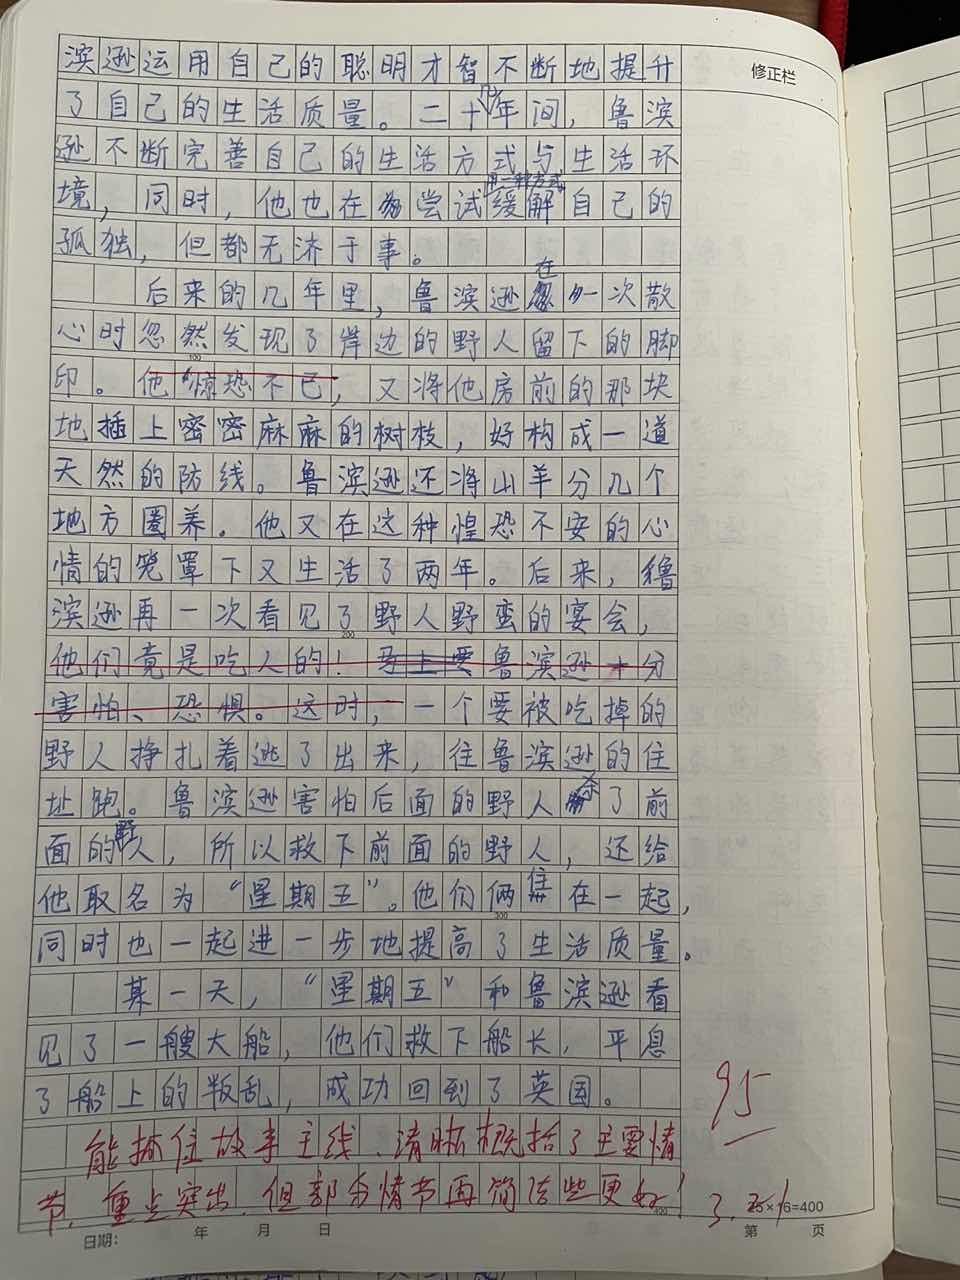 滨逊运用自己的聪明才智不断地提升
修正栏
了自己的生活质量。二十几年间，鲁滨
逊不断完善自己的生活方式与生活环
境，同时，他也在尝试用一种方式缓解自己的
孤独，但都无济于事。
后来的几年里，鲁滨逊在一次散
心时忽然发现了岸边的野人留下的脚
100
印。他惊恐不已，又将他房前的那块
地插上密密麻麻的树枝，好构成一道
天然的防线。鲁滨逊还将山羊分几个
地方圈养。他又在这种惶恐不安的心
情的笼罩下又生活了两年。后来，鲁
滨逊再一次看见了野人野蛮的宴会，
200
他们竟是吃人的！马上要鲁滨逊十分
害怕、恐惧。这时，一个要被吃掉的
野人挣扎着逃了出来，往鲁滨逊的住
址跑。鲁滨逊害怕后面的野人杀了前
面的野人，所以救下前面的野人，还给
他取名为“星期五”。他们俩住在一起，
300
同时也一起进一步地提高了生活质量。
某一天，“星期五”和鲁滨逊看
见了一艘大船，他们救下船长，平息
了船上的叛乱，成功回到了英国。
95
能抓住故事主线，清晰概括了主要情
节，重点突出，但部分情节再简洁些更好！
400
3.
25×16=400
日期： 年 月 日
第 页